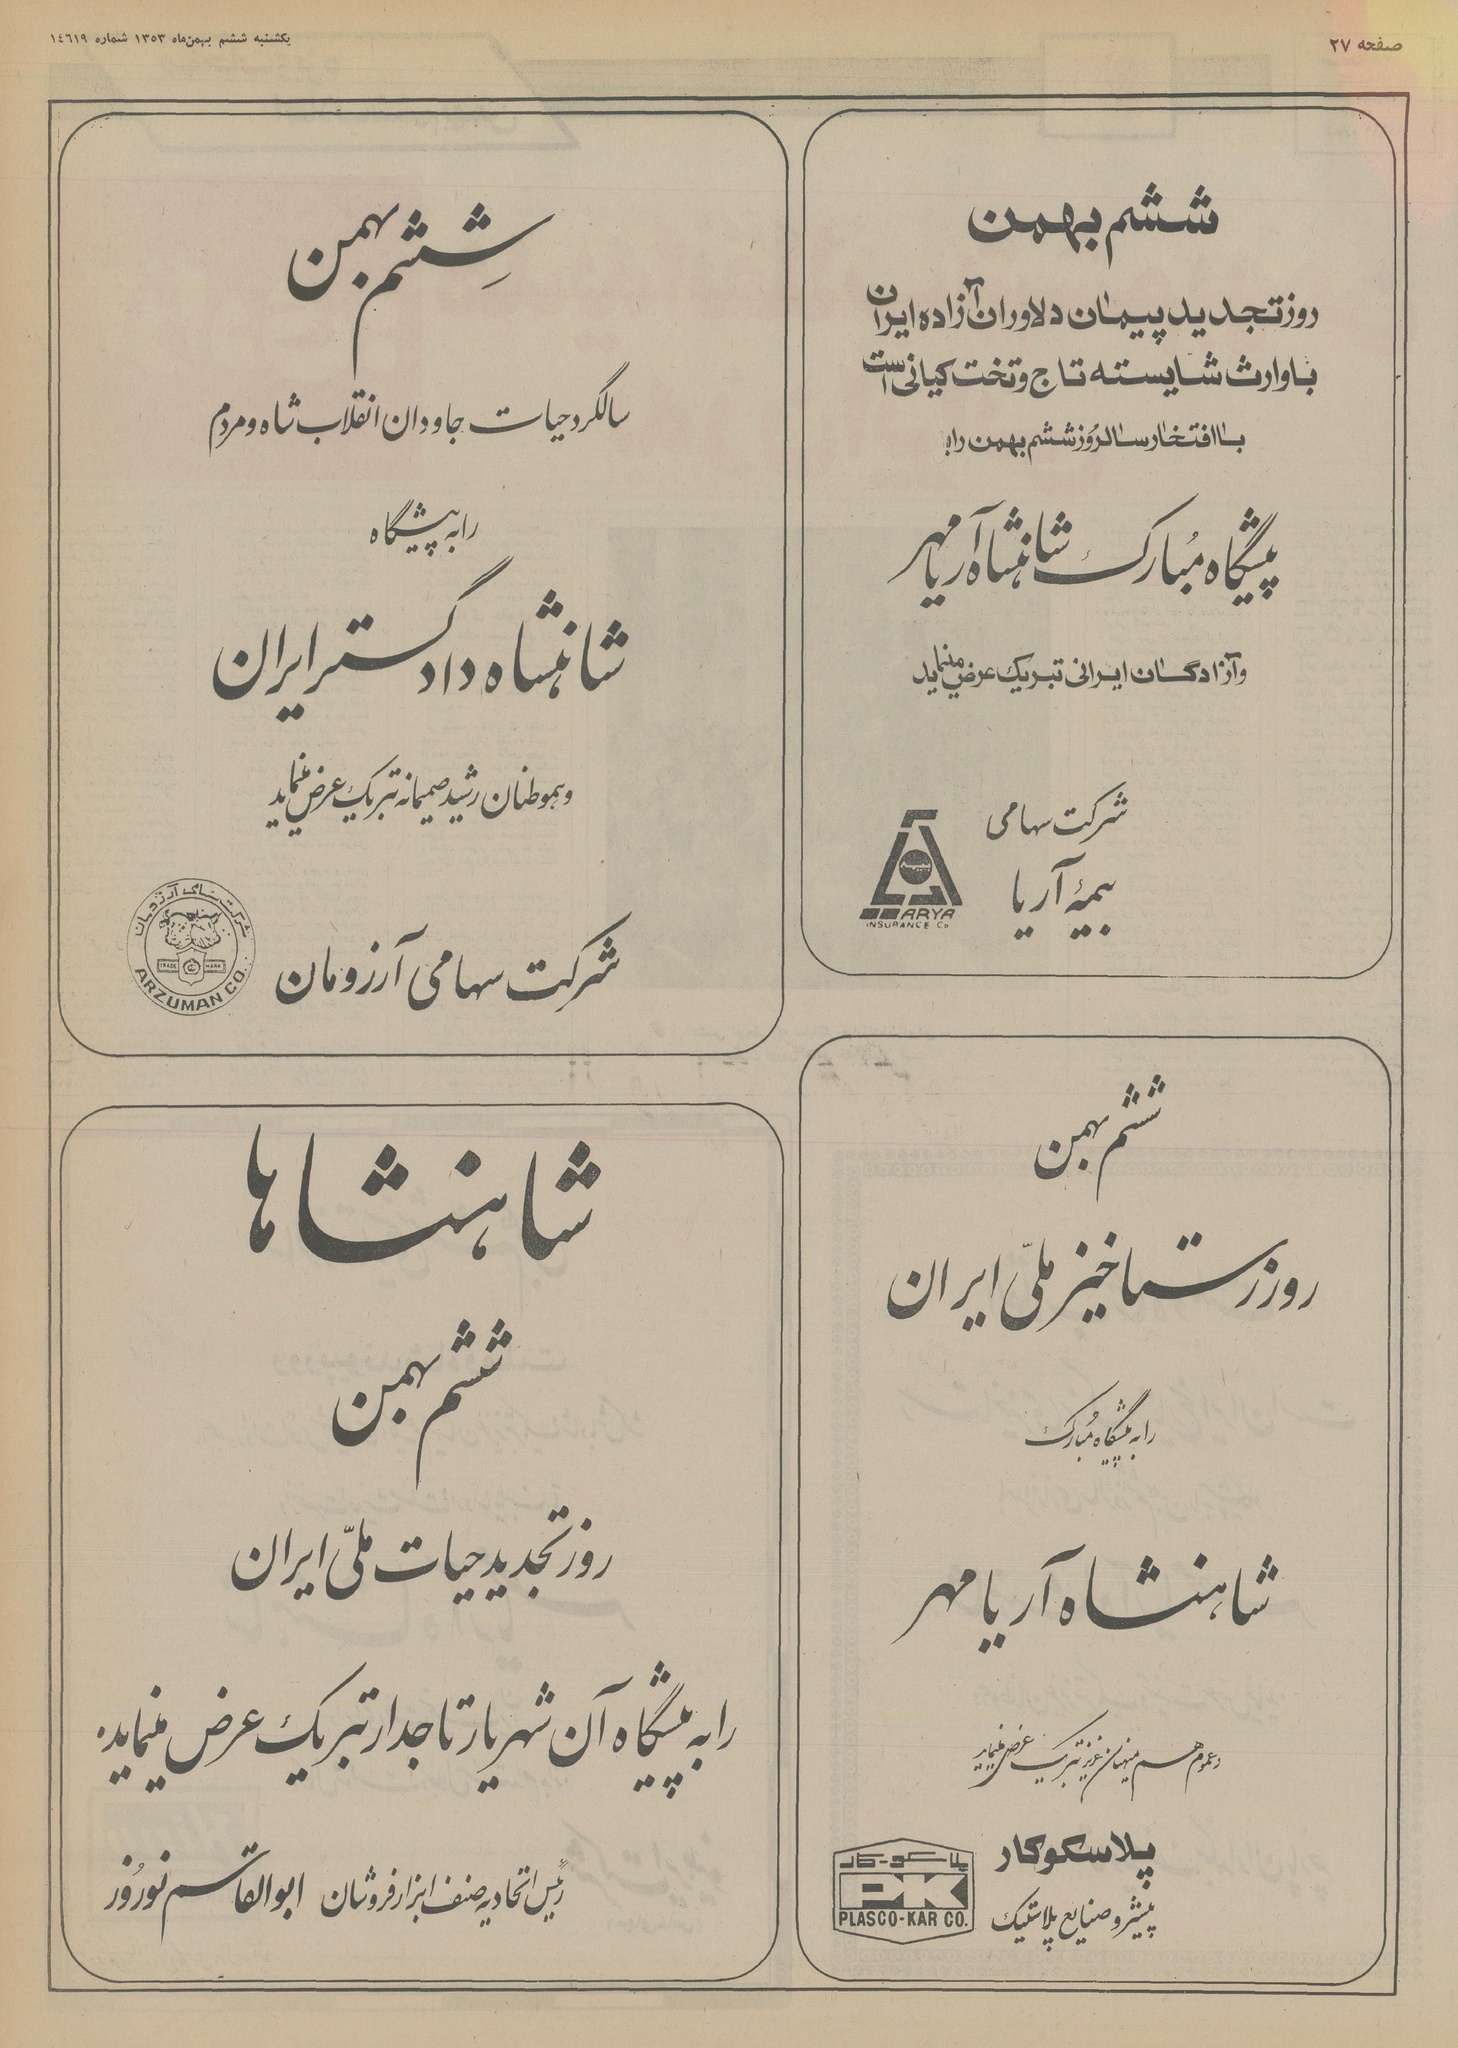 صفحه ۲۷
یکشنبه ششم بهمن‌ماه ۱۳۵۳ شماره ۱۴۶۱۹
ششم بهمن
روز تجدید پیمان دلاوران آزاده ایران
با وارث شایسته تاج و تخت کیانی است
با افتخار سالروز ششم بهمن را به
پیشگاه مبارک شاهنشاه آریامهر
و آزادگان ایرانی تبریک عرض مینماید
شرکت سهامی
بیمهٔ آریا
بیمه
ARYA
INSURANCE Co
ششم بهمن
سالگرد حیات جاودان انقلاب شاه و مردم
را به پیشگاه
شاهنشاه دادگستر ایران
و هموطنان رشید صمیمانه تبریک عرض مینماید
شرکت سهامی آرزومان
TRADE MARK
ARZUMAN CO.
ششم بهمن
روز رستاخیز ملّی ایران
را به پیشگاه مُبارک
شاهنشاه آریامهر
و عموم هم میهنان عزیز تبریک عرض مینماید
پلاسکوکار
پیشرو صنایع پلاستیک
پلاسکو-کار
PK
PLASCO-KAR CO.
شاهنشاها
ششم بهمن
روز تجدید حیات ملّی ایران
را به پیشگاه آن شهریار تاجدار تبریک عرض مینماید.
رئیس اتحادیه صنف ابزارفروشان ابوالقاسم نوروز